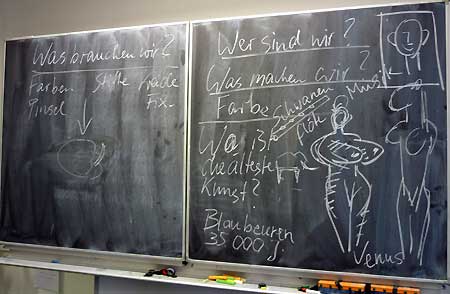 Was brauchen wir?
Farben Stifte Kreide
Pinsel Fix.
Wer sind wir?
Was machen wir?
Farbe Schwanen Musik
Flöte
Wo ist
die älteste
Kunst?
Blaubeuren
35 000 J.
Venus